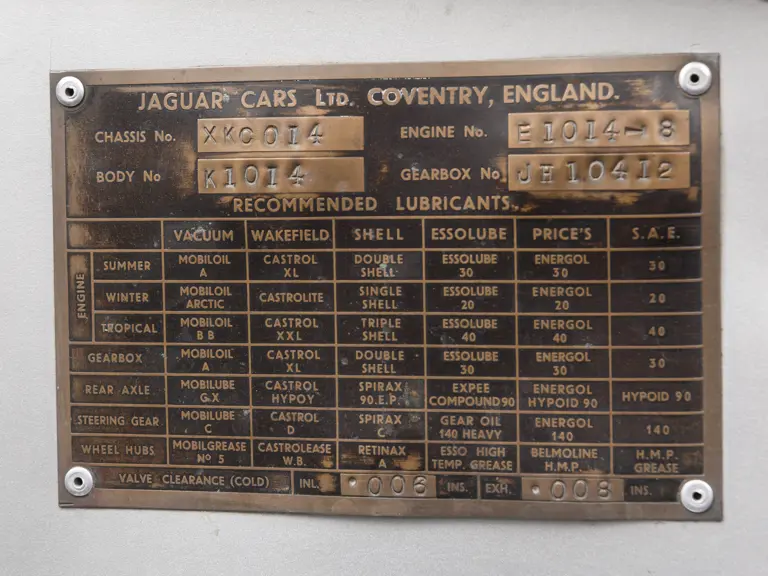 JAGUAR CARS LTD. COVENTRY, ENGLAND.
CHASSIS No. XKC014 ENGINE No. E1014-8
BODY No K1014 GEARBOX No JH10412
RECOMMENDED LUBRICANTS.
VACUUM WAKEFIELD SHELL ESSOLUBE PRICE'S S.A.E.
ENGINE
SUMMER MOBILOIL A CASTROL XL DOUBLE SHELL ESSOLUBE 30 ENERGOL 30 30
WINTER MOBILOIL ARCTIC CASTROLITE SINGLE SHELL ESSOLUBE 20 ENERGOL 20 20
TROPICAL MOBILOIL B B CASTROL XXL TRIPLE SHELL ESSOLUBE 40 ENERGOL 40 40
GEARBOX MOBILOIL A CASTROL XL DOUBLE SHELL ESSOLUBE 30 ENERGOL 30 30
REAR AXLE MOBILUBE G.X CASTROL HYPOY SPIRAX 90.E.P. EXPEE COMPOUND 90 ENERGOL HYPOID 90 HYPOID 90
STEERING GEAR MOBILUBE C CASTROL D SPIRAX C GEAR OIL 140 HEAVY ENERGOL 140 140
WHEEL HUBS MOBILGREASE Nº 5 CASTROLEASE W.B. RETINAX A ESSO HIGH TEMP. GREASE BELMOLINE H.M.P. H.M.P. GREASE
VALVE CLEARANCE (COLD) INL. .006 INS. EXH. .008 INS.